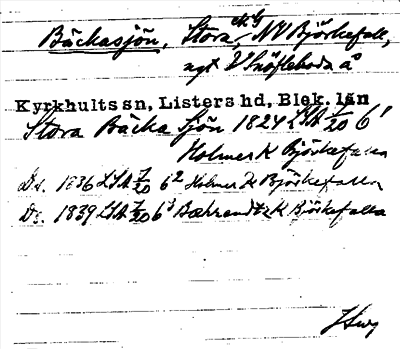 Bäckasjön, Stora, NV Björkefall,
ngt V Snöflebodaå
Kyrkhults sn, Listers hd, Blek. län
Stora Bäcka Sjön 1824 LSA 7/20 6¹
Holmer K Björkefalla
Ds. 1836 LSA 7/20 6² Holmer K Björkefalla
Ds. 1839 LSA 7/20 6³ Bæhrendtz K Björkefalla